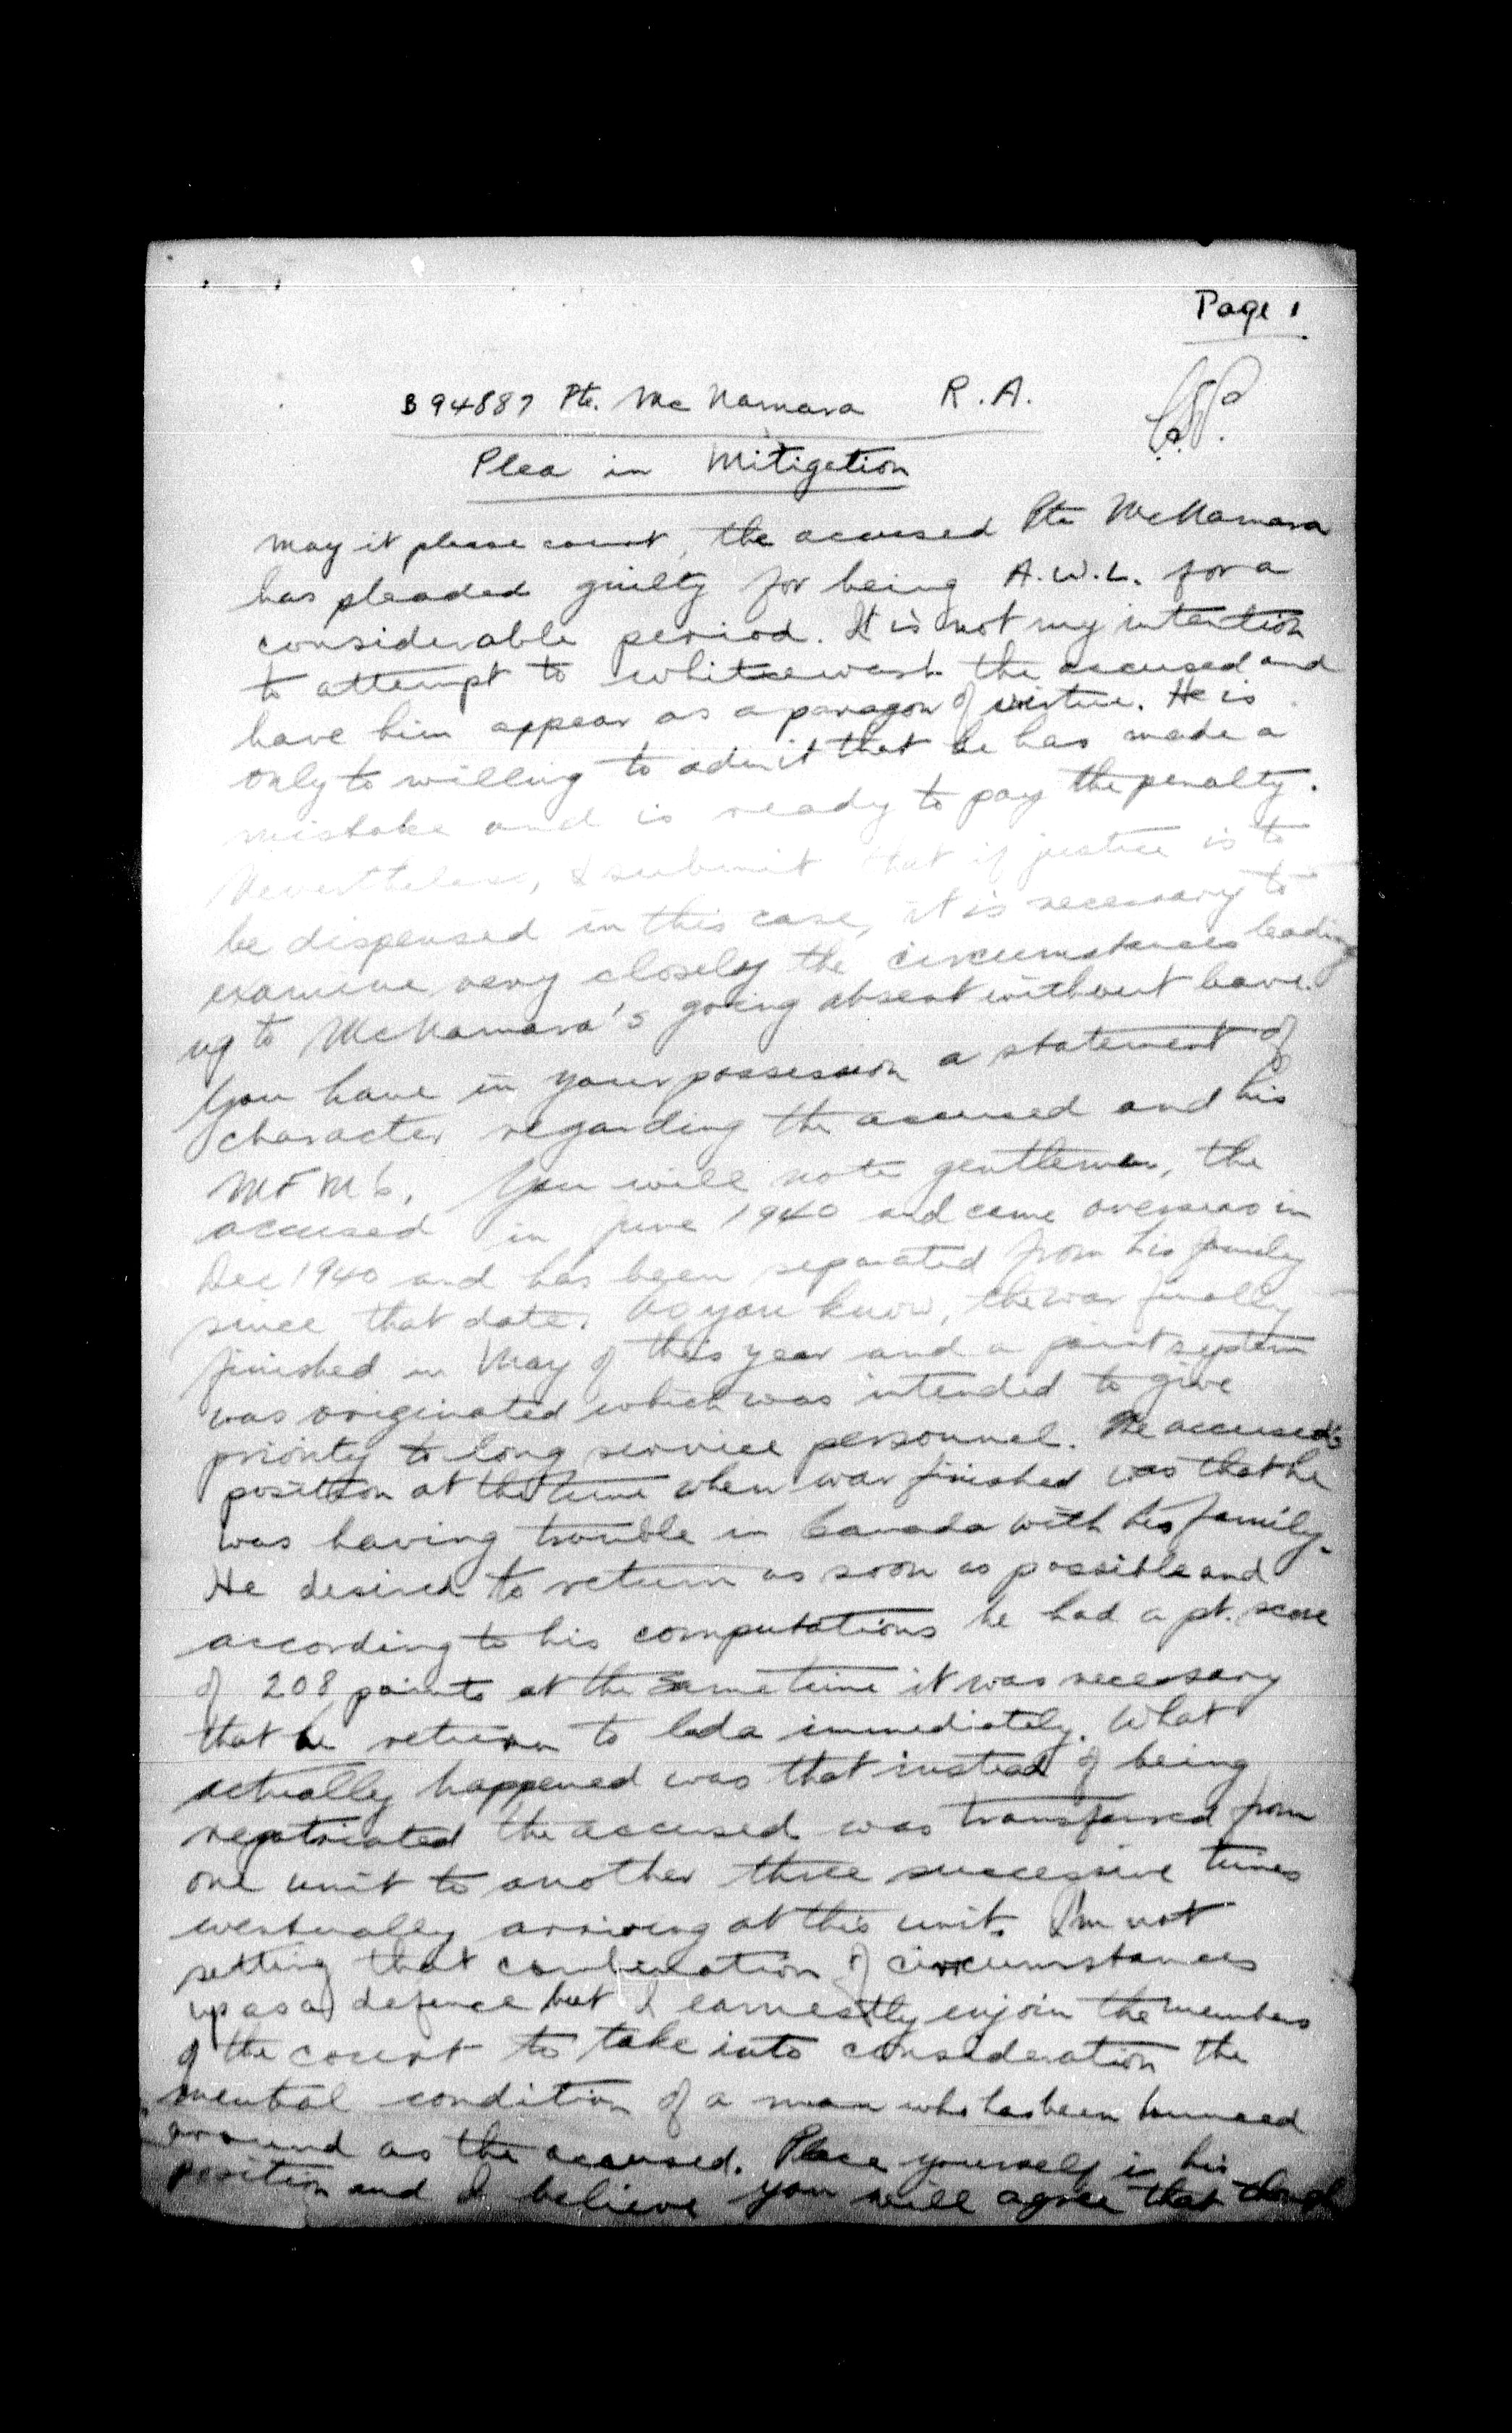 Page 1
B94887 Pte. McNamara R.A.
Plea in Mitigation
May it please court, the accused Pte McNamara
has pleaded guilty for being A.W.L. for a
considerable period. It is not my intention
to attempt to whitewash the accused and
have him appear as a paragon of virtue. He is
only to willing to admit that he has made a
mistake and is ready to pay the penalty.
Nevertheless, I submit that if justice is to
be dispensed in this case, it is necessary to
examine very closely the circumstances leading
up to McNamara's going absent without leave.
You have in your possession a statement of
character regarding the accused and his
MFM6. You will note gentlemen, the
accused in June 1940 and came overseas in
Dec 1940 and has been separated from his family
since that date. As you know, the war finally
finished in May of this year and a point system
was originated which was intended to give
priority to long service personnel. The accused's
position at the time when war finished was that he
was having trouble in Canada with his family.
He desired to return as soon as possible and
according to his computations he had a pt. score
of 208 points at the same time it was necessary
that he return to Cda immediately. What
actually happened was that instead of being
repatriated the accused was transferred from
one unit to another three successive times
eventually arriving at this unit. I'm not
setting that combination of circumstances
up as a defence but I earnestly enjoin the members
of the court to take into consideration the
mental condition of a man who has been bounced
around as the accused. Place yourself in his
position and I believe you will agree that though